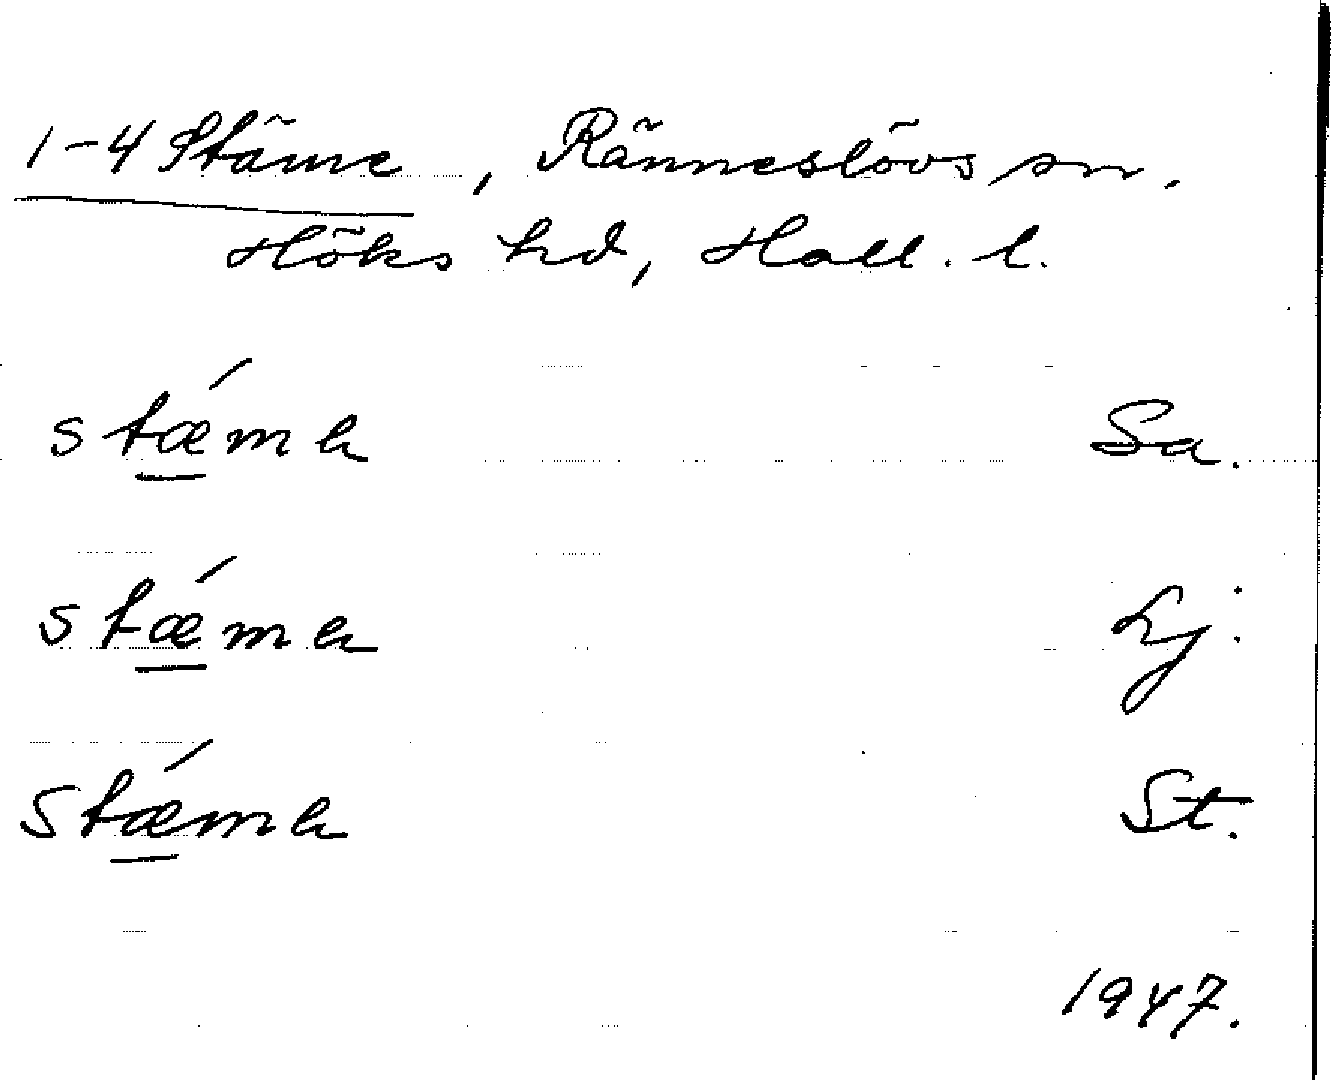 1-4 Stäme, Ränneslövs sn.
Höks hd, Hall. l.
stǽmə Sa.
stǽmə Lj.
stǽmə St.
1947.